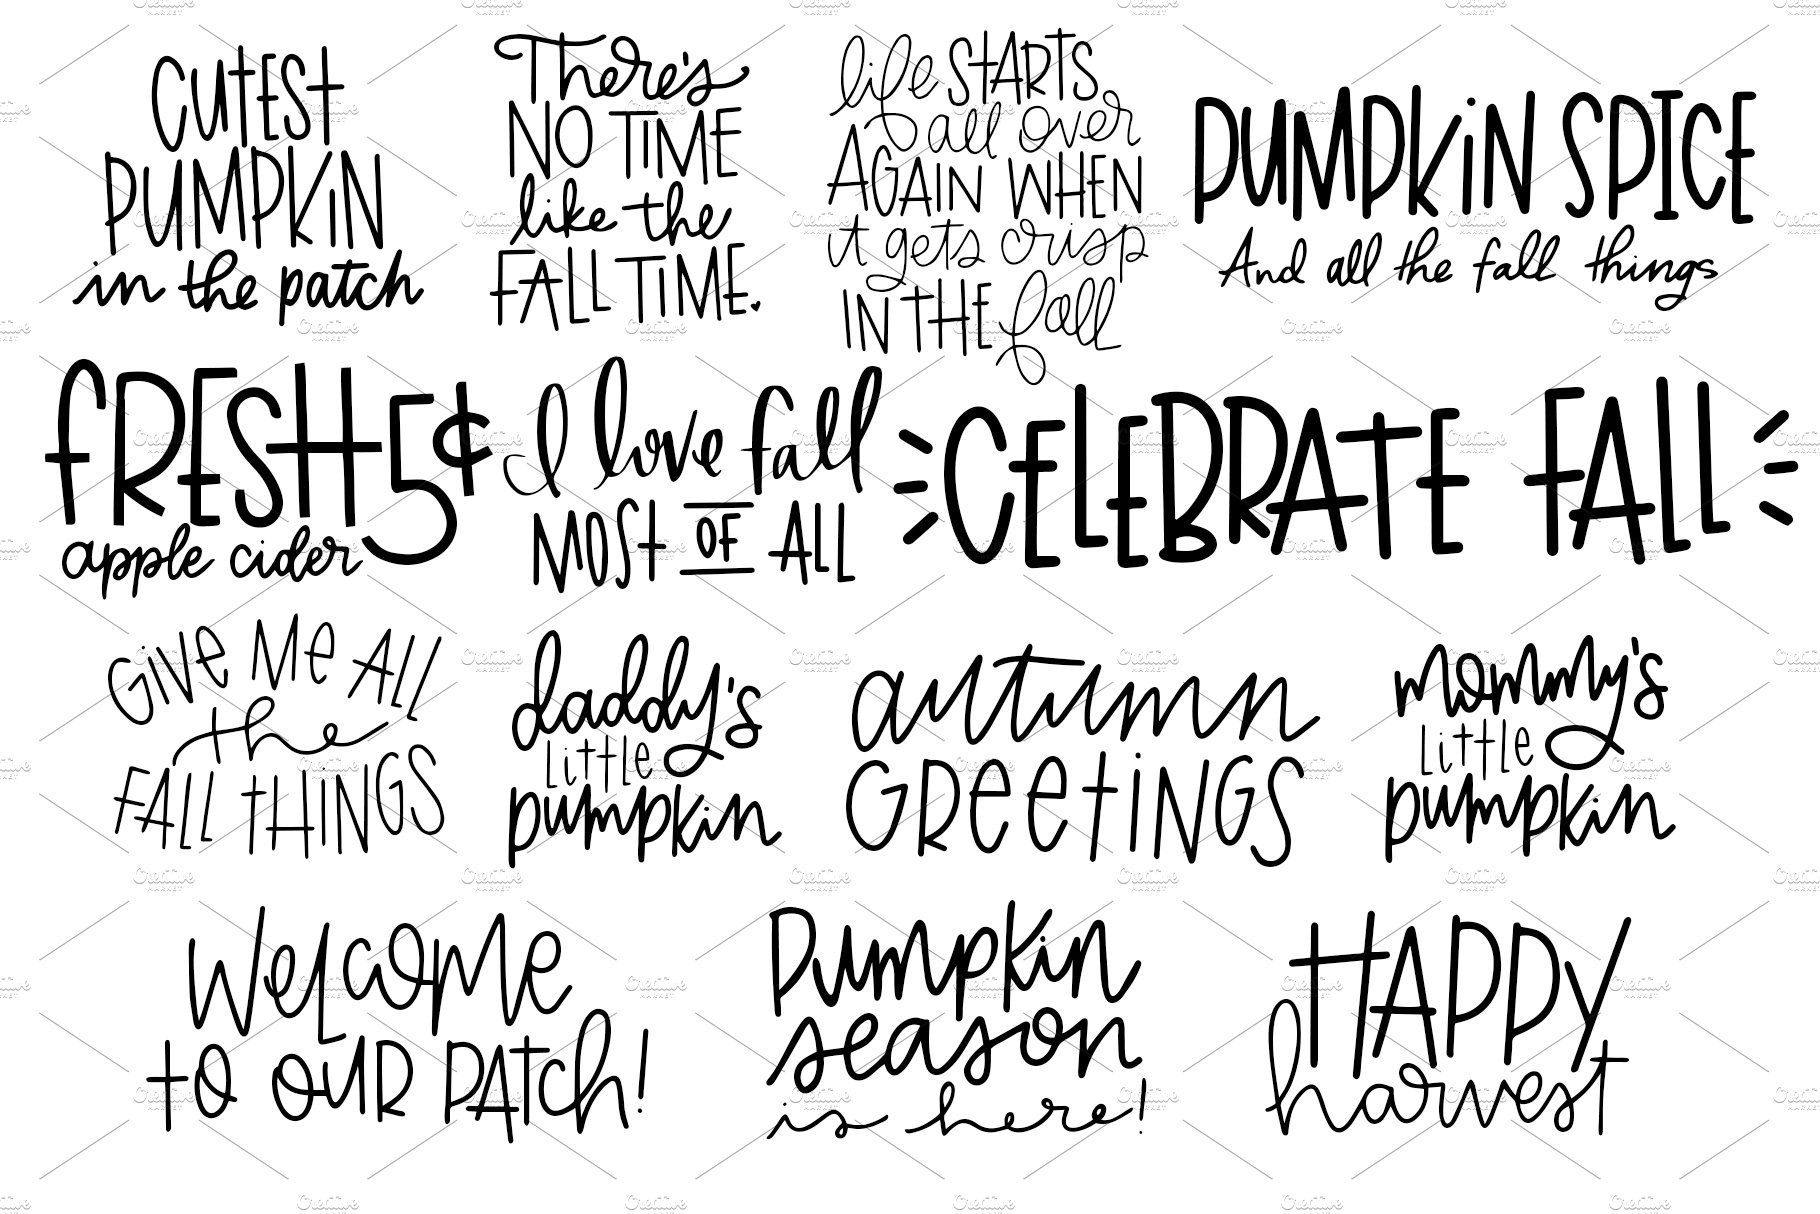 CUTEST
PUMPKIN
in the patch
There's
NO TIME
like the
FALL TIME.
life STARTS
all over
AGAIN WHEN
it gets crisp
IN THE fall
PUMPKIN SPICE
And all the fall things
FRESH 5¢
apple cider
I love fall
MOST OF ALL
CELEBRATE FALL
GIVE ME ALL
the
FALL THINGS
daddy's
LITTLE
pumpkin
autumn
GREETINGS
mommy's
LITTLE
pumpkin
WELCOME
to OUR PATCH!
Pumpkin
season
is here!
HAPPY
harvest
Creative
MARKET